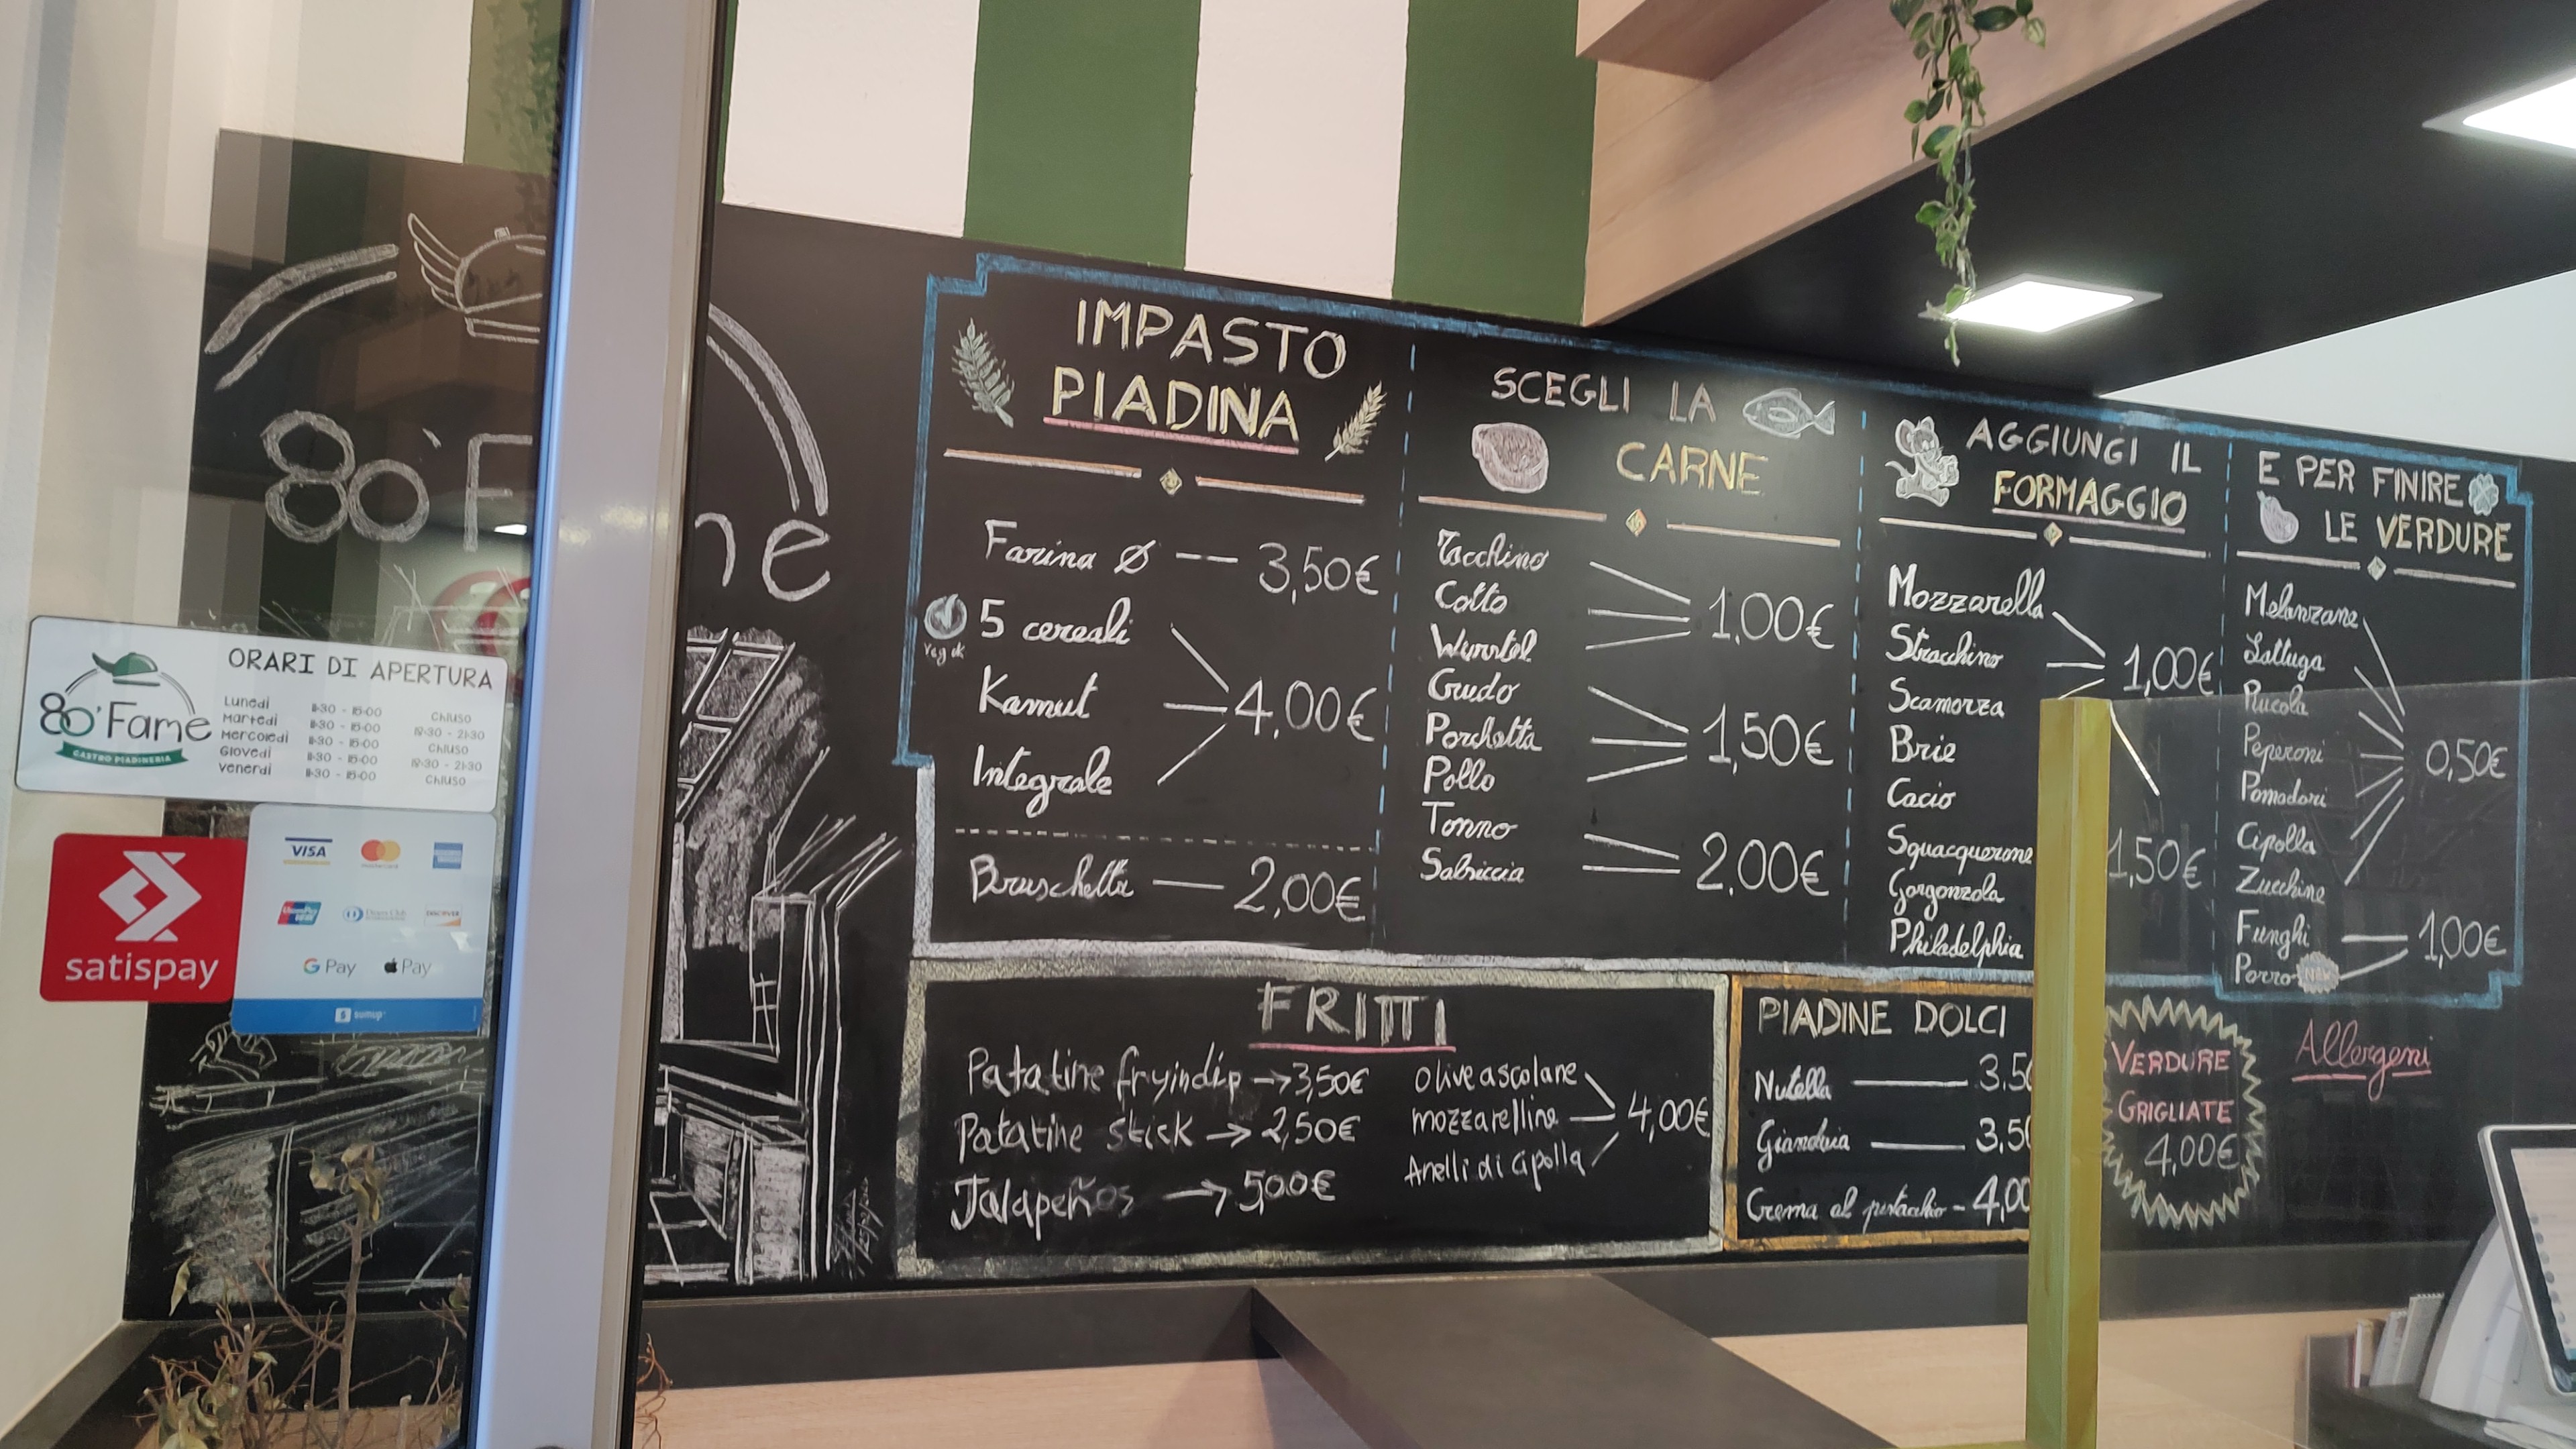 80'F
ne
IMPASTO
PIADINA
Farina Ø 3,50€
5 cereali
Veg ok
Kamut
4,00€
Integrale
Bruschetta 2,00€
SCEGLI LA
CARNE
Tacchino
Cotto
1,00€
Wurstel
Crudo
Porchetta
1,50€
Pollo
Tonno
2,00€
Salsiccia
AGGIUNGI IL
FORMAGGIO
Mozzarella
Stracchino
1,00€
Scamorza
Brie
Cacio
Squacquerone
1,50€
Gorgonzola
Philadelphia
E PER FINIRE
LE VERDURE
Melanzane
Lattuga
Rucola
Peperoni
0,50€
Pomodori
Cipolla
Zucchine
Funghi
1,00€
Porro NEW
FRITTI
Patatine fryindip 3,50€
Patatine stick 2,50€
Jalapeños 5,00€
Olive ascolane
mozzarelline
4,00€
Anelli di cipolla
PIADINE DOLCI
Nutella 3,50
Gianduia 3,50
Crema al pistacchio 4,00
VERDURE
GRIGLIATE
4,00€
Allergeni
80'Fame
GASTRO PIADINERIA
ORARI DI APERTURA
Lunedì 11-30 - 15-00 CHIUSO
Martedì 11-30 - 15-00 19-30 - 21-30
Mercoledì 11-30 - 15-00 CHIUSO
Giovedì 11-30 - 15-00 19-30 - 21-30
Venerdì 11-30 - 15-00 CHIUSO
satispay
VISA
mastercard
UnionPay
Diners Club
DISCOVER
G Pay
Pay
sumup